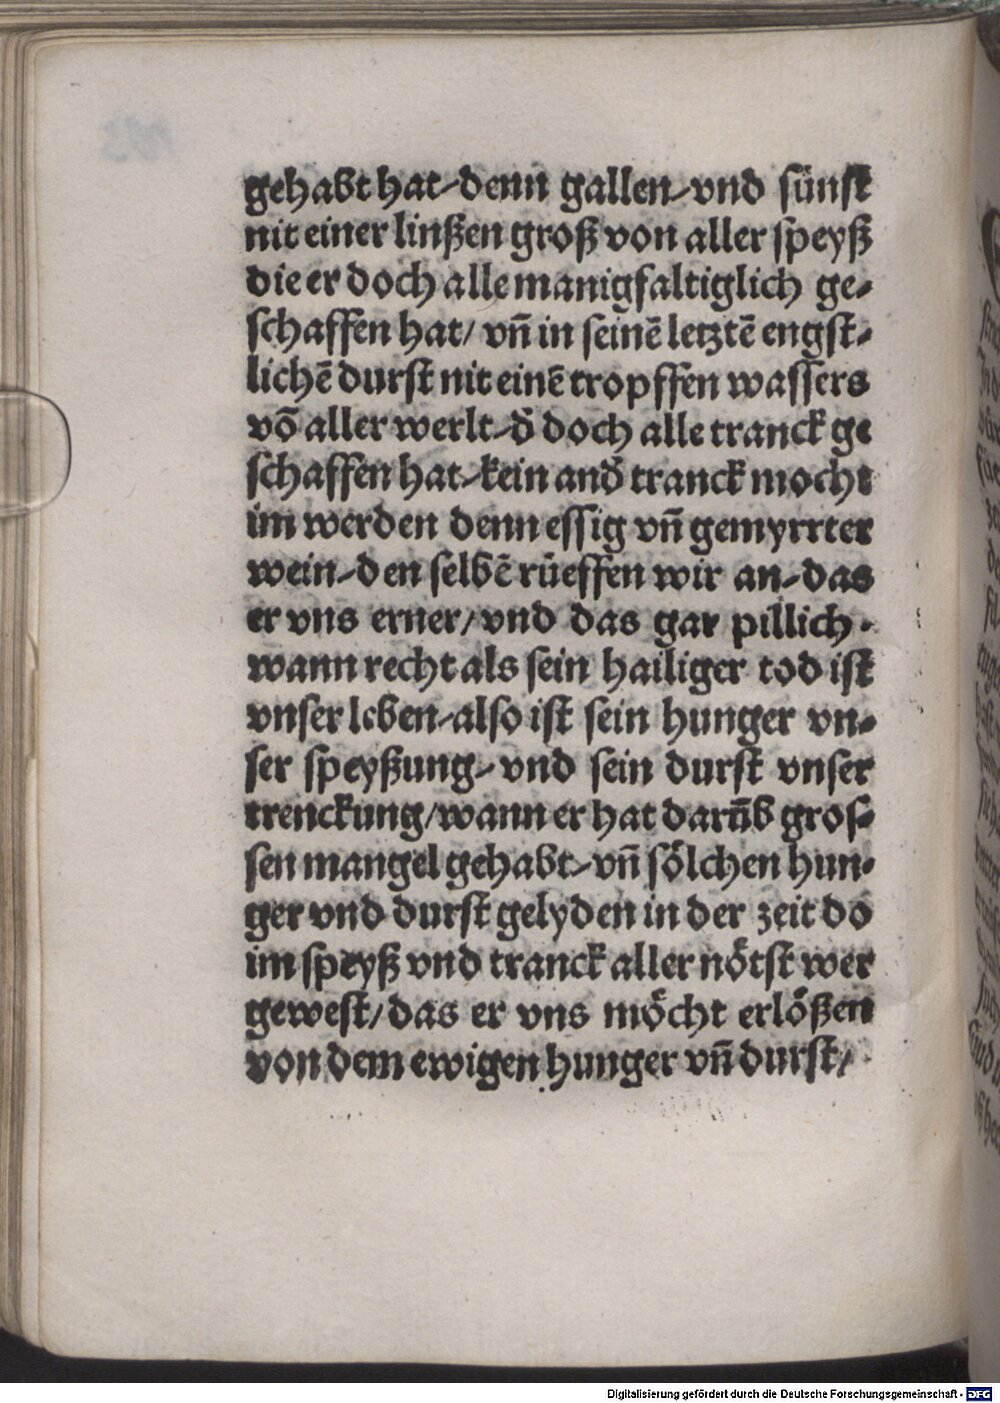 gehabt hat/denn gallen/vnd sünst
nit einer linßen groß von aller speyß
die er doch alle manigfaltiglich ge/
schaffen hat/ vñ in seinē letztē engst/
lichē durst nit einē tropffen wassers
võ aller werlt/d̄ doch alle tranck ge
schaffen hat/kein and̄ tranck mocht
im werden denn essig vñ gemyrrter
wein/den selbē rüeffen wir an/das
er vns erner/vnd das gar pillich.
wann recht als sein hailiger tod ist
vnser leben/also ist sein hunger vn/
ser speyßung/vnd sein durst vnser
trenckung/wann er hat darūb gros/
sen mangel gehabt/vñ sölchen hun/
ger vnd durst gelyden in der zeit do
im speyß vnd tranck aller nötst wer
gewest/das er vns möcht erlößen
von dem ewigen hunger vñ durst/
Digitalisierung gefördert durch die Deutsche Forschungsgemeinschaft - DFG